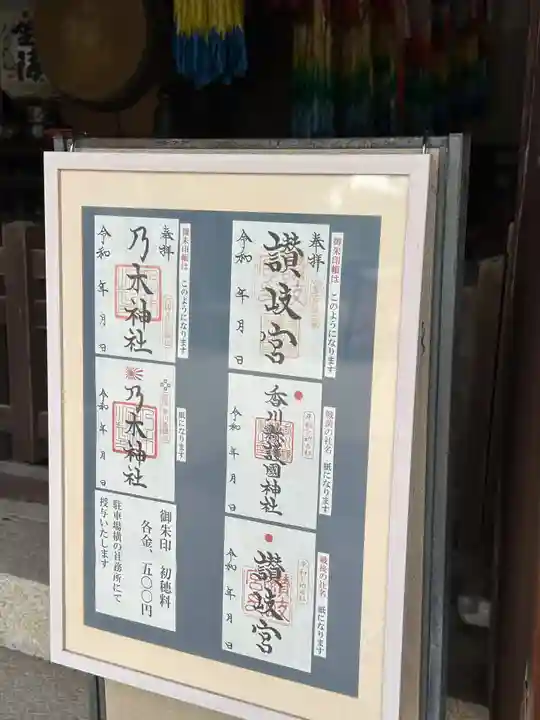 奉拝
讃岐宮
令和 年 月 日
御朱印帳は このようになります
香川縣護國神社
令和 年 月 日
戦前の社名 紙になります
讃岐宮
令和 年 月 日
最後の社名 紙になります
奉拝
乃木神社
令和 年 月 日
御朱印帳は このようになります
乃木神社
令和 年 月 日
紙になります
御朱印 初穂料
各金、五〇〇円
駐車場横の社務所にて
授与いたします